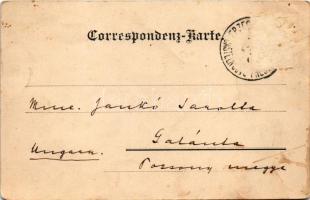 Correspondenz-Karte.
Mme. Jankó Sarolta
Galánta
Ungarn.
Pozsony megye